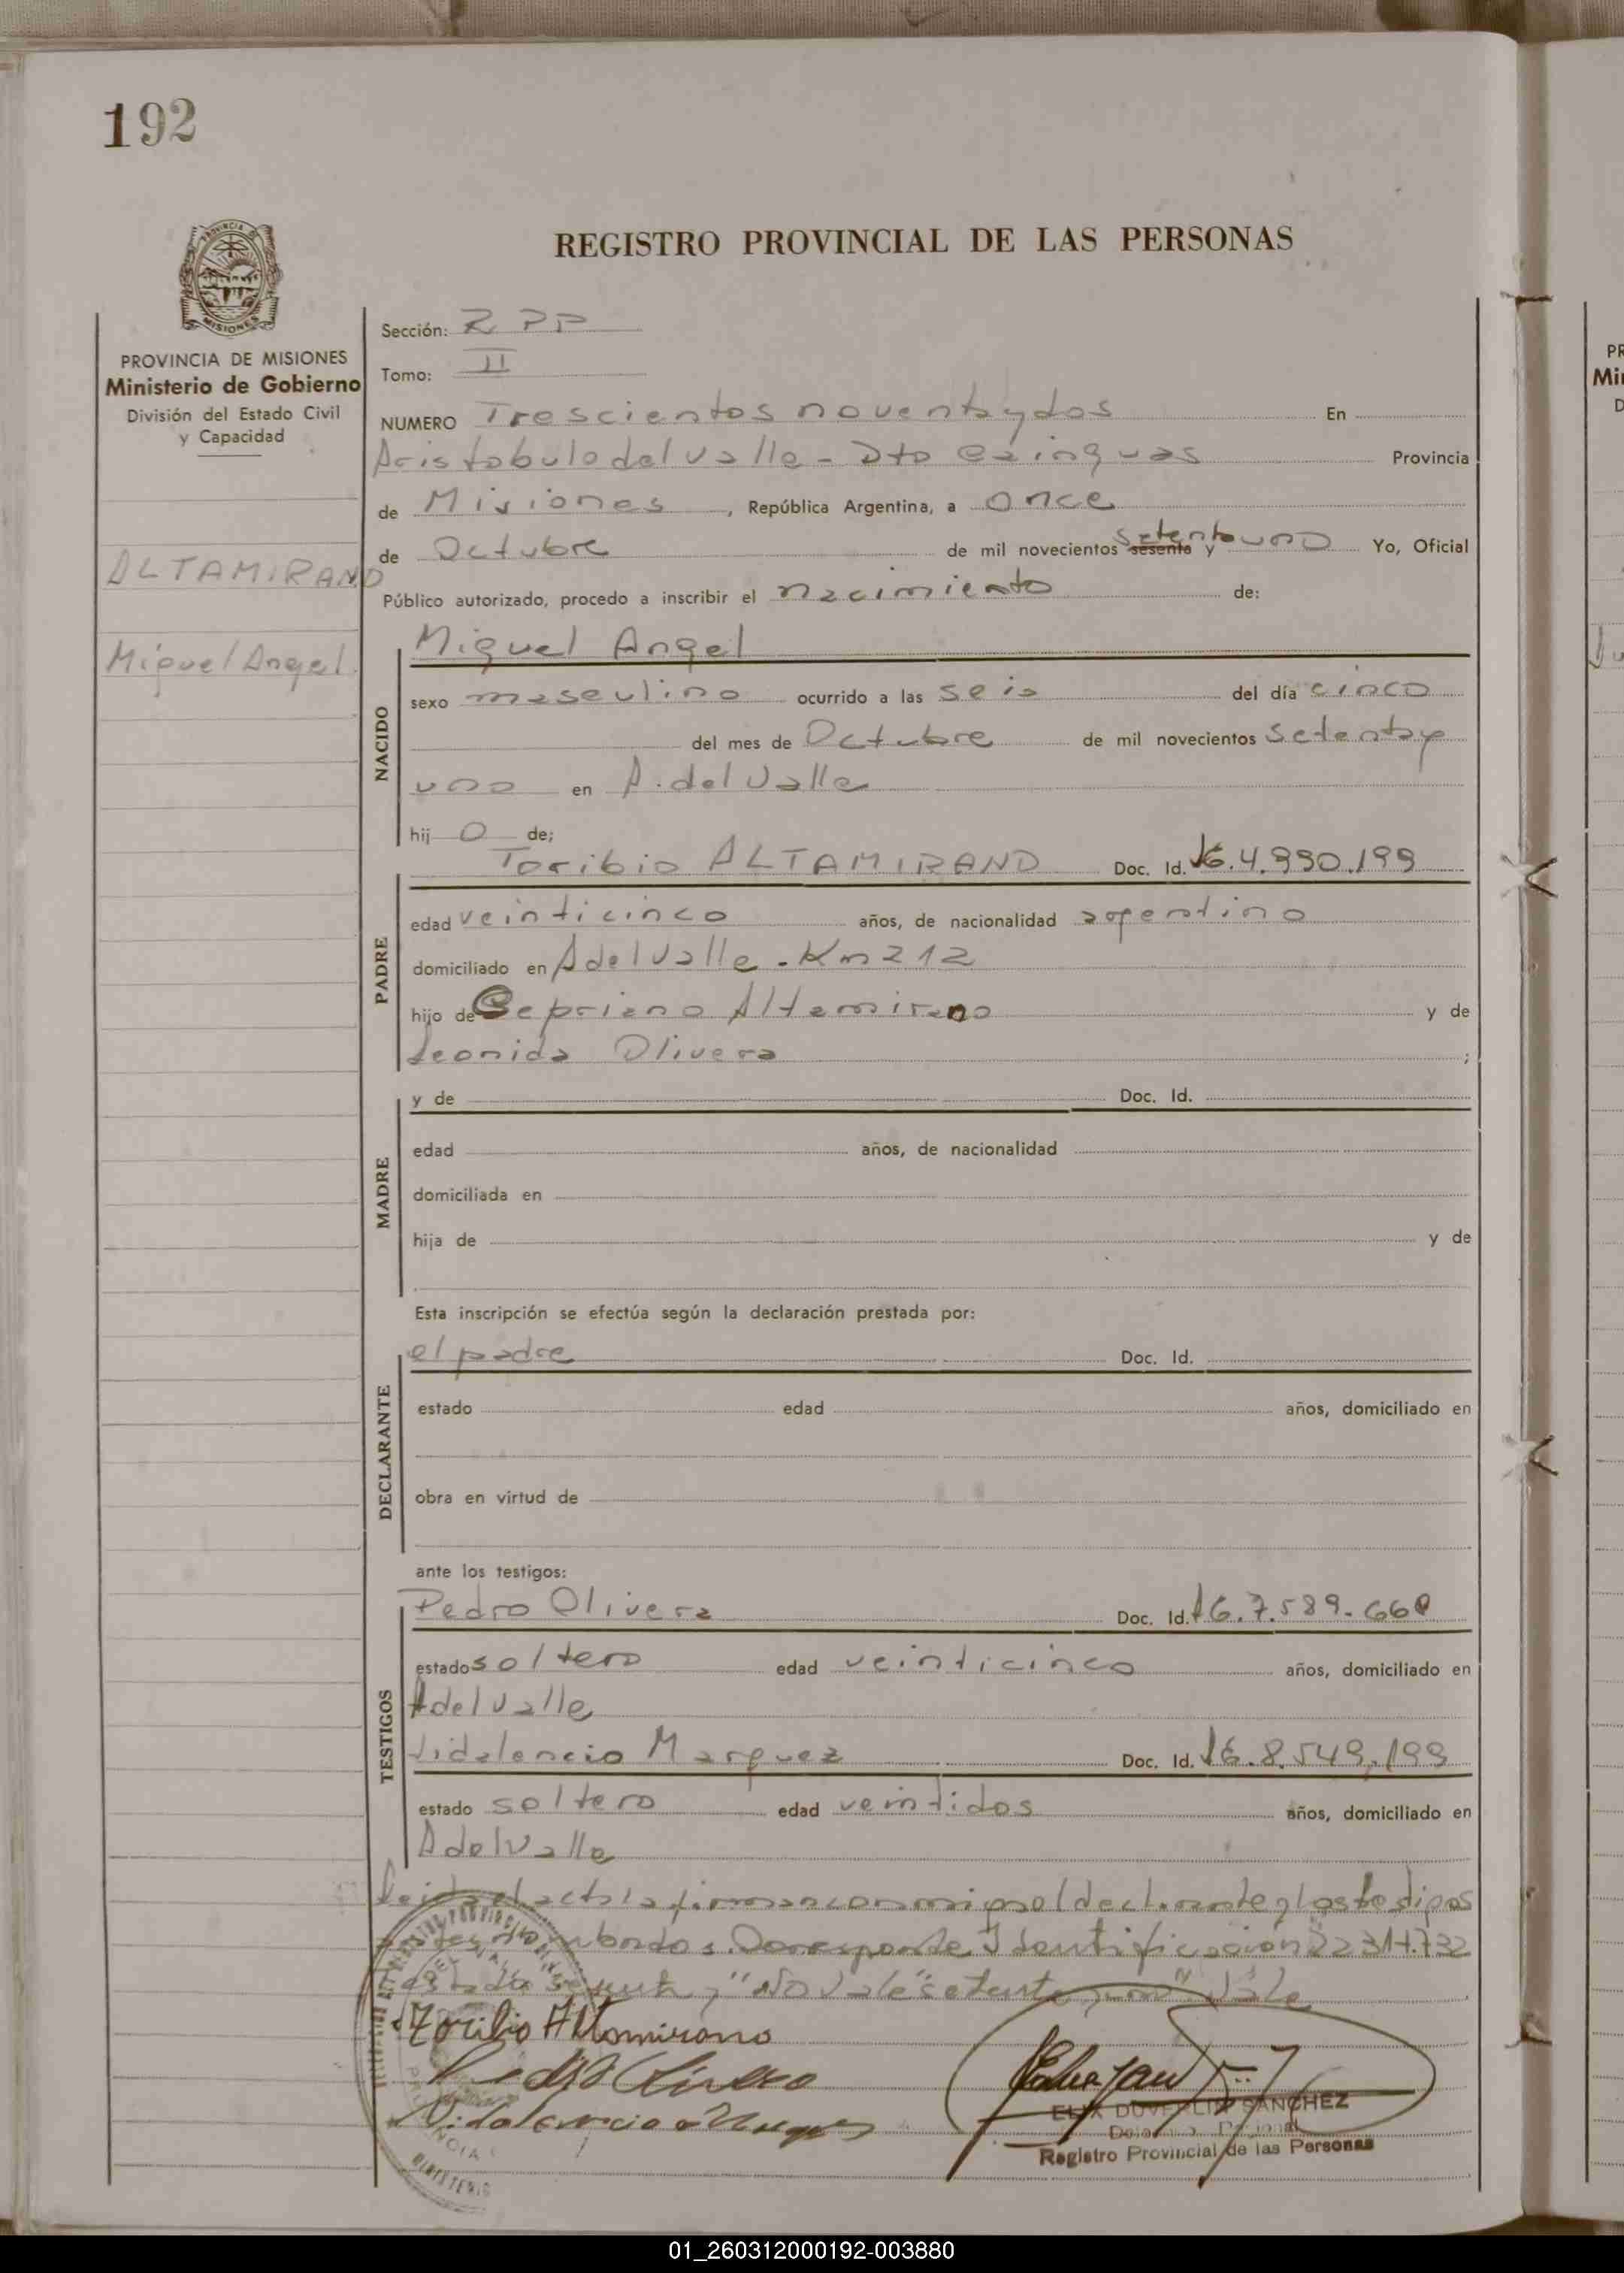 192
REGISTRO PROVINCIAL DE LAS PERSONAS
PROVINCIA DE MISIONES
Ministerio de Gobierno
División del Estado Civil
y Capacidad
ALTAMIRANO
Miguel Angel
Sección: RPP
Tomo: II
NUMERO Trescientos noventa y dos En
Aristobulo del Valle - Dto Cainguas Provincia
de Misiones, República Argentina, a once
de Octubre de mil novecientos sesenta y setenta uno Yo, Oficial
Público autorizado, procedo a inscribir el nacimiento de:
NACIDO
Miguel Angel
sexo masculino ocurrido a las seis del día cinco
del mes de Octubre de mil novecientos setenta y
uno en A. del Valle
hijo de;
PADRE
Toribio ALTAMIRANO Doc. Id. 16.4.990.199
edad veinticinco años, de nacionalidad argentino
domiciliado en A del Valle - Km 212
hijo de Cepriano Altamirano y de
Leonida Olivera ;
MADRE
y de Doc. Id.
edad años, de nacionalidad
domiciliada en
hija de y de
Esta inscripción se efectúa según la declaración prestada por:
DECLARANTE
el padre Doc. Id.
estado edad años, domiciliado en
obra en virtud de
ante los testigos:
TESTIGOS
Pedro Olivera Doc. Id. 16.7.589.660
estado soltero edad veinticinco años, domiciliado en
A del Valle
Vidalencio Marquez Doc. Id. 16.8.549.199
estado soltero edad veintidos años, domiciliado en
A del Valle
Leida el acta la firman conmigo el declarante y los testigos
Corresponde Identificación 22317.732
"No Vale" setenta y uno" Vale
Toribio Altamirano
Pedro Olivera
Vidalencio Marquez
SANCHEZ
Registro Provincial de las Personas
01_260312000192-003880